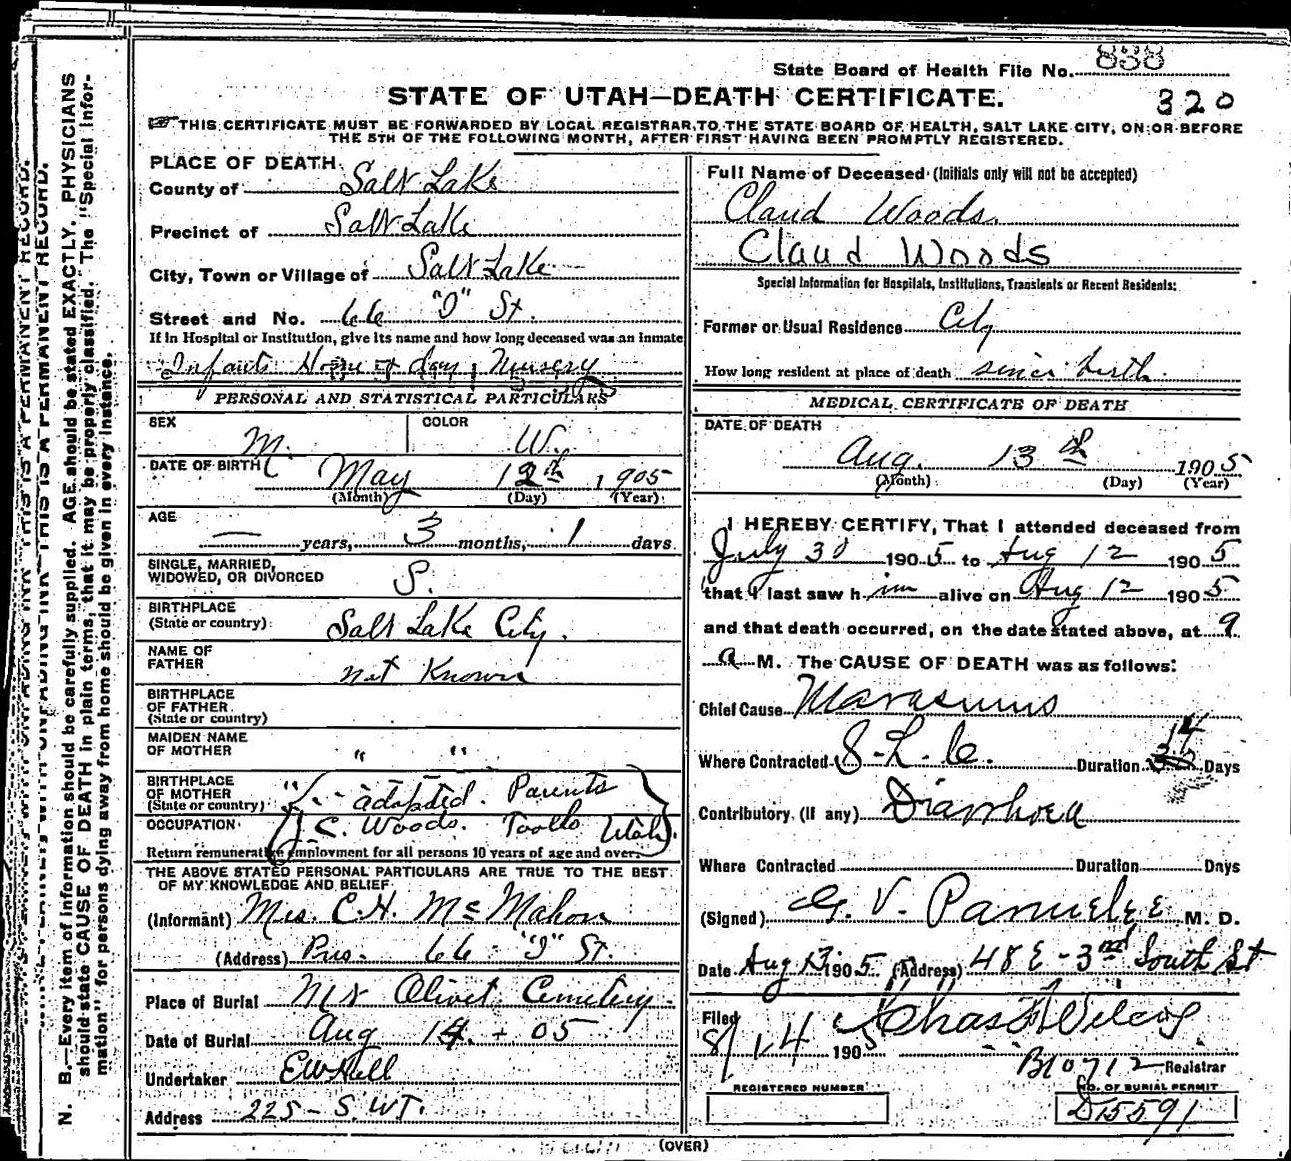 State Board of Health File No. 838
STATE OF UTAH—DEATH CERTIFICATE.
320
THIS CERTIFICATE MUST BE FORWARDED BY LOCAL REGISTRAR TO THE STATE BOARD OF HEALTH, SALT LAKE CITY, ON OR BEFORE
THE 5TH OF THE FOLLOWING MONTH, AFTER FIRST HAVING BEEN PROMPTLY REGISTERED.
PLACE OF DEATH.
County of Salt Lake
Precinct of Salt Lake
City, Town or Village of Salt Lake
Street and No. 66 "J" St.
If in Hospital or Institution, give its name and how long deceased was an inmate
Infants Home & day Nursery
PERSONAL AND STATISTICAL PARTICULARS
SEX M. COLOR W.
DATE OF BIRTH May 12th 1905
(Month) (Day) (Year)
AGE — years, 3 months, 1 days
SINGLE, MARRIED,
WIDOWED, OR DIVORCED S.
BIRTHPLACE
(State or country) Salt Lake City.
NAME OF
FATHER not Known
BIRTHPLACE
OF FATHER
(State or country)
MAIDEN NAME
OF MOTHER " "
BIRTHPLACE
OF MOTHER
(State or country) " adopted Parents
OCCUPATION (J. C. Woods. Tooele Utah).
Return remunerative employment for all persons 10 years of age and over.
THE ABOVE STATED PERSONAL PARTICULARS ARE TRUE TO THE BEST
OF MY KNOWLEDGE AND BELIEF.
(Informant) Mrs. C. H. McMahon
(Address) Pres. 66 "J" St.
Place of Burial Mt Olivet Cemetery
Date of Burial Aug 14 - 05
Undertaker E W Hall
Address 225 - S. W T.
Full Name of Deceased (Initials only will not be accepted)
Claud Woods.
Claud Woods
Special Information for Hospitals, Institutions, Transients or Recent Residents:
Former or Usual Residence City
How long resident at place of death since birth
MEDICAL CERTIFICATE OF DEATH
DATE OF DEATH
Aug. 13th 1905
(Month) (Day) (Year)
I HEREBY CERTIFY, That I attended deceased from
July 30 1905 to Aug 12 1905
that I last saw him alive on Aug 12 1905
and that death occurred, on the date stated above, at 9
a M. The CAUSE OF DEATH was as follows:
Chief Cause Marasmus
Where Contracted S. L. C. Duration 14 Days
Contributory (if any) Diarrhoea
Where Contracted Duration Days
(Signed) G. V. Parmelee M. D.
Date Aug 13 1905 (Address) 48 E - 3rd South St
Filed
8/14 1905 Chas F Wilcox
B10712 Registrar
REGISTERED NUMBER NO. OF BURIAL PERMIT
D15591
(OVER)
N. B.—Every item of information should be carefully supplied. AGE should be stated EXACTLY. PHYSICIANS
should state CAUSE OF DEATH in plain terms, that it may be properly classified. The "Special Infor-
mation" for persons dying away from home should be given in every instance.
WRITE PLAINLY, WITH UNFADING INK—THIS IS A PERMANENT RECORD.